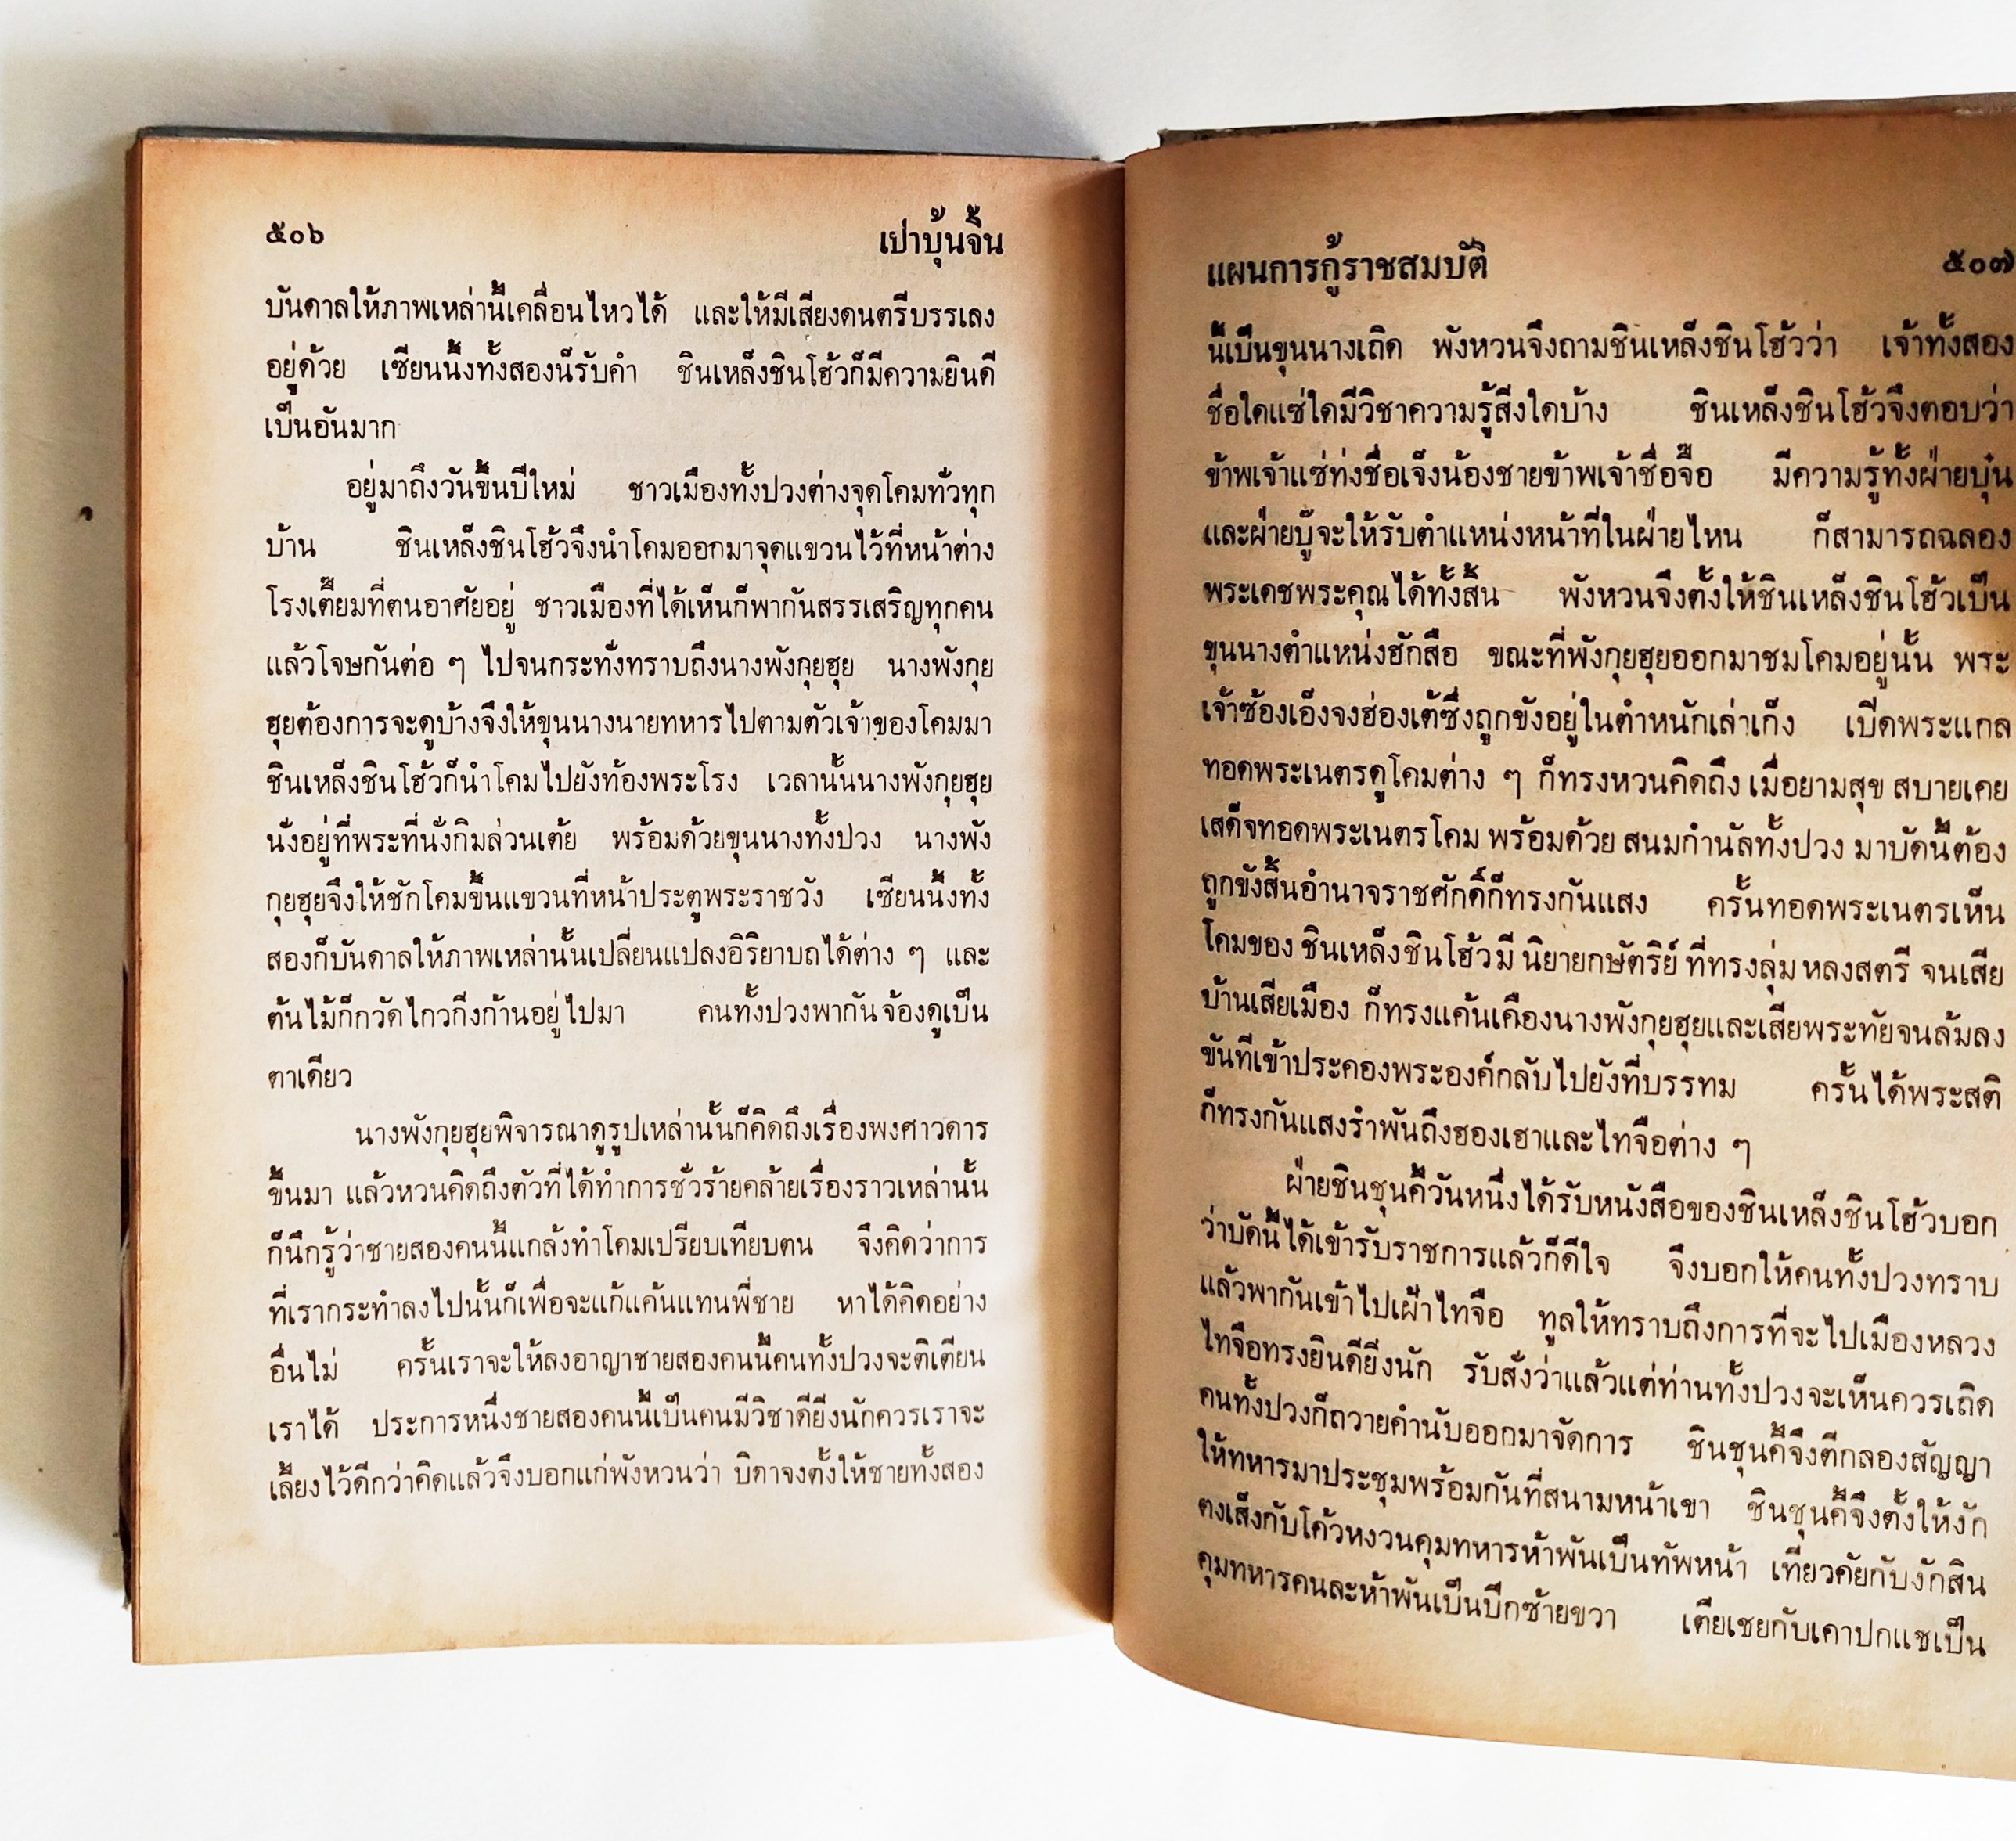 ๕๐๖ เปาบุ้นจิ้น
บันดาลให้ภาพเหล่านี้เคลื่อนไหวได้ และให้มีเสียงดนตรีบรรเลง
อยู่ด้วย เซียนนั้งทั้งสองน็รับคำ ชินเหล็งชินโฮ้วก็มีความยินดี
เป็นอันมาก
อยู่มาถึงวันขึ้นปีใหม่ ชาวเมืองทั้งปวงต่างจุดโคมทั่วทุก
บ้าน ชินเหล็งชินโฮ้วจึงนำโคมออกมาจุดแขวนไว้ที่หน้าต่าง
โรงเตี๊ยมที่ตนอาศัยอยู่ ชาวเมืองที่ได้เห็นก็พากันสรรเสริญทุกคน
แล้วโจษกันต่อ ๆ ไปจนกระทั่งทราบถึงนางพังกุยฮุย นางพังกุย
ฮุยต้องการจะดูบ้างจึงให้ขุนนางนายทหารไปตามตัวเจ้าของโคมมา
ชินเหล็งชินโฮ้วก็นำโคมไปยังท้องพระโรง เวลานั้นนางพังกุยฮุย
นั่งอยู่ที่พระที่นั่งกิมล่วนเต้ย พร้อมด้วยขุนนางทั้งปวง นางพัง
กุยฮุยจึงให้ชักโคมขึ้นแขวนที่หน้าประตูพระราชวัง เซียนนั้งทั้ง
สองก็บันดาลให้ภาพเหล่านั้นเปลี่ยนแปลงอิริยาบถได้ต่าง ๆ และ
ต้นไม้ก็กวัดไกวกิ่งก้านอยู่ไปมา คนทั้งปวงพากันจ้องดูเป็น
ตาเดียว
นางพังกุยฮุยพิจารณาดูรูปเหล่านั้นก็คิดถึงเรื่องพงศาวดาร
ขึ้นมา แล้วหวนคิดถึงตัวที่ได้ทำการชั่วร้ายคล้ายเรื่องราวเหล่านั้น
ก็นึกรู้ว่าชายสองคนนี้แกล้งทำโคมเปรียบเทียบตน จึงคิดว่าการ
ที่เรากระทำลงไปนั้นก็เพื่อจะแก้แค้นแทนพี่ชาย หาได้คิดอย่าง
อื่นไม่ ครั้นเราจะให้ลงอาญาชายสองคนนี้คนทั้งปวงจะติเตียน
เราได้ ประการหนึ่งชายสองคนนี้เป็นคนมีวิชาดียิ่งนักควรเราจะ
เลี้ยงไว้ดีกว่าคิดแล้วจึงบอกแก่พังหวนว่า บิดาจงตั้งให้ชายทั้งสอง
แผนการกู้ราชสมบัติ ๕๐๗
นี้เป็นขุนนางเถิด พังหวนจึงถามชินเหล็งชินโฮ้วว่า เจ้าทั้งสอง
ชื่อใดแซ่ใดมีวิชาความรู้สิ่งใดบ้าง ชินเหล็งชินโฮ้วจึงตอบว่า
ข้าพเจ้าแซ่ท่งชื่อเจ็งน้องชายข้าพเจ้าชื่อจื๊อ มีความรู้ทั้งฝ่ายบุ๋น
และฝ่ายบู๊จะให้รับตำแหน่งหน้าที่ในฝ่ายไหน ก็สามารถฉลอง
พระเดชพระคุณได้ทั้งสิ้น พังหวนจึงตั้งให้ชินเหล็งชินโฮ้วเป็น
ขุนนางตำแหน่งฮักสือ ขณะที่พังกุยฮุยออกมาชมโคมอยู่นั้น พระ
เจ้าซ้องเอ็งจงฮ่องเต้ซึ่งถูกขังอยู่ในตำหนักเล่าเก็ง เปิดพระแกล
ทอดพระเนตรดูโคมต่าง ๆ ก็ทรงหวนคิดถึง เมื่อยามสุข สบายเคย
เสด็จทอดพระเนตรโคม พร้อมด้วย สนมกำนัลทั้งปวง มาบัดนี้ต้อง
ถูกขังสิ้นอำนาจราชศักดิ์ก็ทรงกันแสง ครั้นทอดพระเนตรเห็น
โคมของ ชินเหล็งชินโฮ้วมี นิยายกษัตริย์ ที่ทรงลุ่ม หลงสตรี จนเสีย
บ้านเสียเมือง ก็ทรงแค้นเคืองนางพังกุยฮุยและเสียพระทัยจนล้มลง
ขันทีเข้าประคองพระองค์กลับไปยังที่บรรทม ครั้นได้พระสติ
ก็ทรงกันแสงรำพันถึงฮองเฮาและไทจือต่าง ๆ
ฝ่ายชินชุนคี้วันหนึ่งได้รับหนังสือของชินเหล็งชินโฮ้วบอก
ว่าบัดนี้ได้เข้ารับราชการแล้วก็ดีใจ จึงบอกให้คนทั้งปวงทราบ
แล้วพากันเข้าไปเฝ้าไทจือ ทูลให้ทราบถึงการที่จะไปเมืองหลวง
ไทจือทรงยินดียิ่งนัก รับสั่งว่าแล้วแต่ท่านทั้งปวงจะเห็นควรเถิด
คนทั้งปวงก็ถวายคำนับออกมาจัดการ ชินชุนคี้จึงตีกลองสัญญา
ให้ทหารมาประชุมพร้อมกันที่สนามหน้าเขา ชินชุนคี้จึงตั้งให้งัก
ตงเส็งกับโค้วหงวนคุมทหารห้าพันเป็นทัพหน้า เที่ยวคัยกับงักสิน
คุมทหารคนละห้าพันเป็นปีกซ้ายขวา เตียเชยกับเคาปกแชเป็น